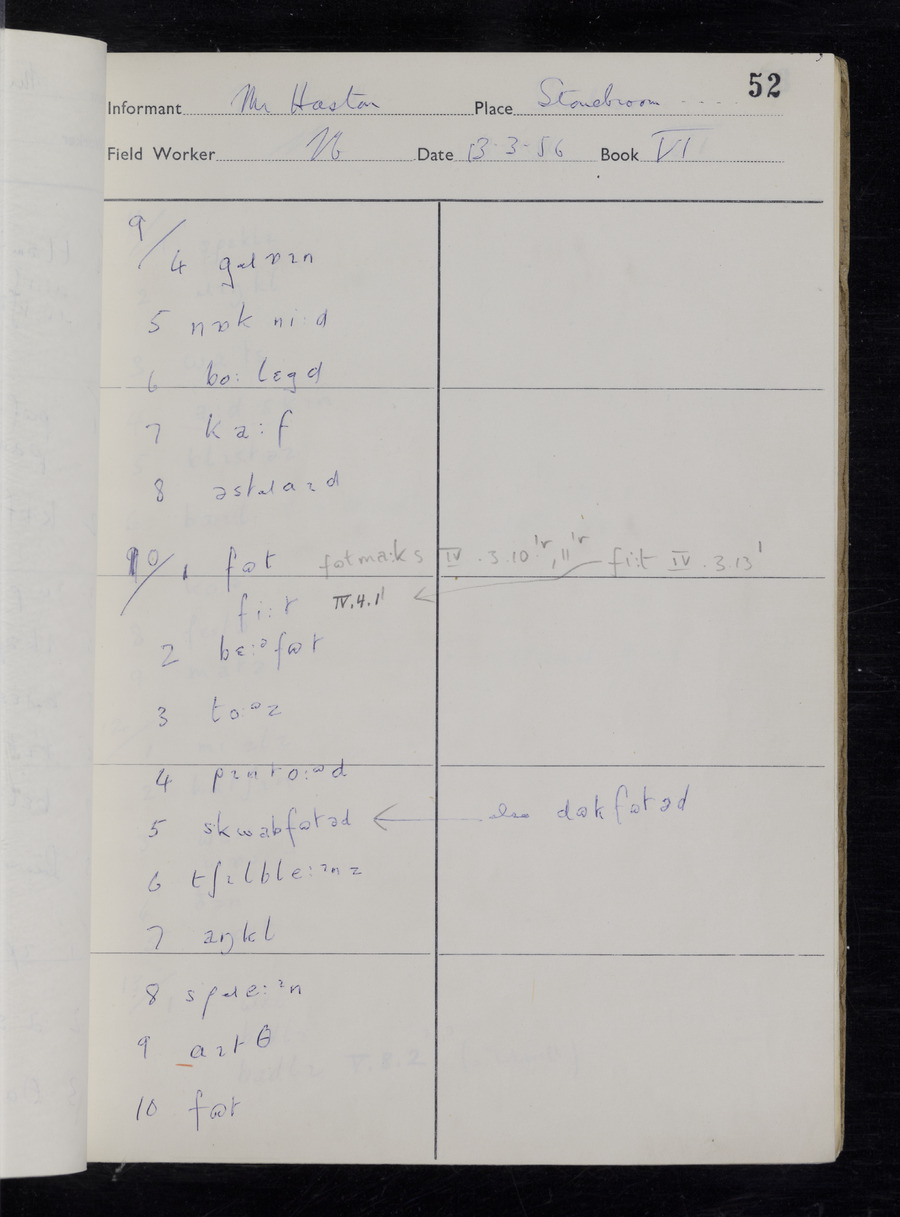 52
Informant Mr Haston Place Stonebroom
Field Worker Date 13-3-56 Book VI
9/
4 gɹɒɪn
5 nɒk ni:d
6 bo: lɛgd
7 ka:f
8 əstɹaɪd
10/ 1 fɷt fɷtma:ks IV.3.10'r, 11'r fi:t IV.3.13'
fi:t IV.4.1'
2 bɛ:ᵊfɷt
3 to:ᶷz
4 pɪnto:ᶷd
5 skwabfɷtəd ← also dɷkfɷtəd
6 tʃɪlble:ᶦnz
7 aŋkl
8 spɹe:ᶦn
9 aɪtθ
10 fɷt